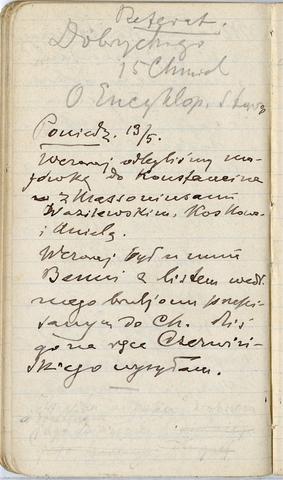 Referat.
Dobrychego
15 Chmiel
O Encyklop.
Poniedz. 13/5.
Wczoraj odbyliśmy ma-
jówkę do Konstancina
z Massoniusami
Wasilewskim, Koskows.
i Anielą.
Wczoraj był u mnie
Bernis z listem wedł.
mego bruljonu przepi-
sanym do Ch. Dziś
go na ręce Czerwiń-
skiego wysyłam.